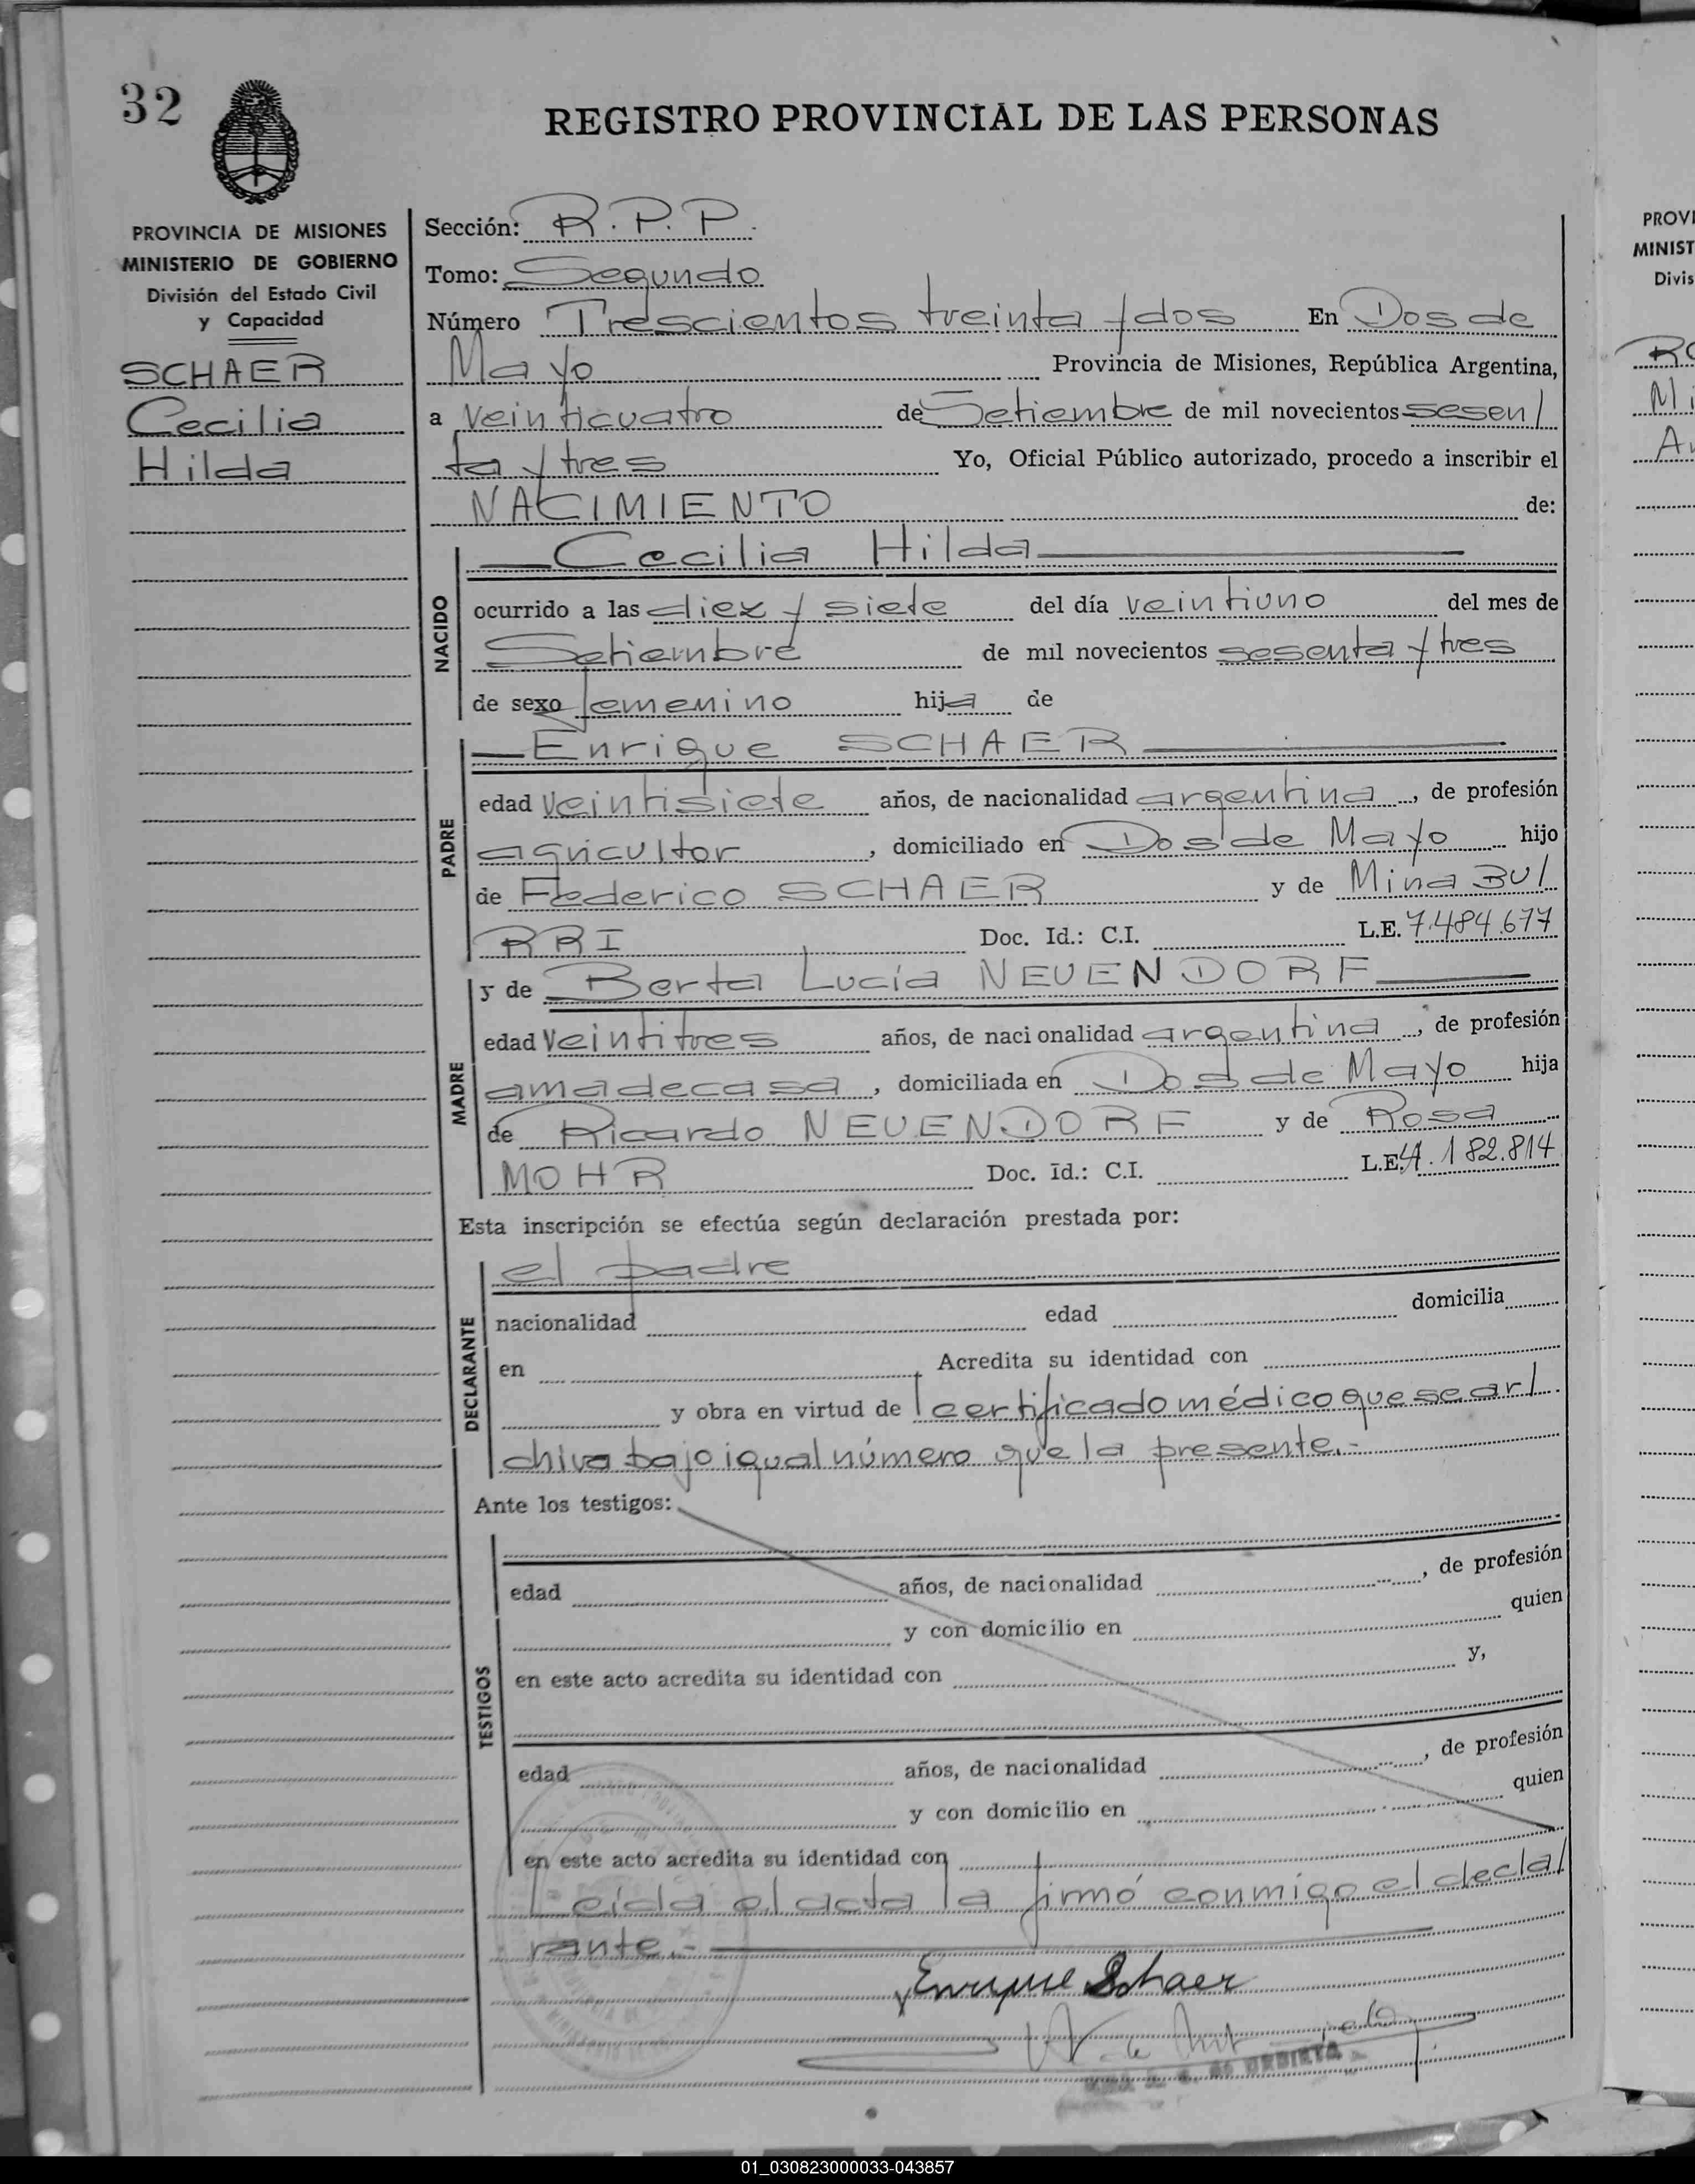 32
REGISTRO PROVINCIAL DE LAS PERSONAS
PROVINCIA DE MISIONES
MINISTERIO DE GOBIERNO
División del Estado Civil
y Capacidad
SCHAER
Cecilia
Hilda
Sección: R. P. P.
Tomo: Segundo
Número Trescientos treinta y dos En Dos de
Mayo Provincia de Misiones, República Argentina,
a veinticuatro de Setiembre de mil novecientos sesen/
ta y tres Yo, Oficial Público autorizado, procedo a inscribir el
NACIMIENTO de:
NACIDO
Cecilia Hilda
ocurrido a las diez y siete del día veintiuno del mes de
Setiembre de mil novecientos sesenta y tres
de sexo femenino hija de
PADRE
Enrique SCHAER
edad veintisiete años, de nacionalidad argentina, de profesión
agricultor, domiciliado en Dos de Mayo hijo
de Federico SCHAER y de Mina BUI
RRI Doc. Id.: C.I. L.E. 7.484.677
MADRE
y de Berta Lucía NEUENDORF
edad veintitres años, de nacionalidad argentina, de profesión
ama de casa, domiciliada en Dos de Mayo hija
de Ricardo NEUENDORF y de Rosa
MOHR Doc. Id.: C.I. L.E. 4.182.814
Esta inscripción se efectúa según declaración prestada por:
DECLARANTE
el padre
nacionalidad edad domicilia
en Acredita su identidad con
y obra en virtud de l certificado médico que se ar/
chiva bajo igual número que la presente.-
Ante los testigos:
TESTIGOS
edad años, de nacionalidad , de profesión
y con domicilio en quien
en este acto acredita su identidad con y,
edad años, de nacionalidad , de profesión
y con domicilio en quien
en este acto acredita su identidad con
Leída el acta la firmó conmigo el decla/
rante.-
Enrique Schaer
de URBIETA
PROVI
MINIST
Divis
01_030823000033-043857